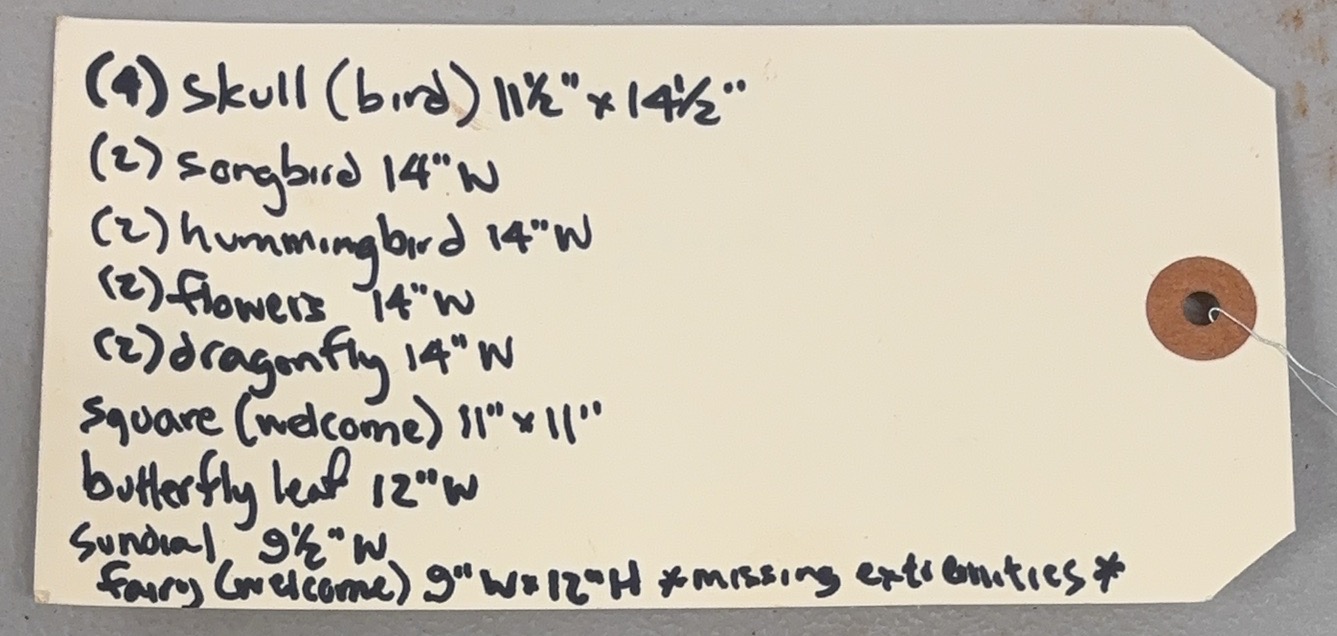 (4) skull (bird) 11½" x 14½"
(2) songbird 14" W
(2) hummingbird 14" W
(2) flowers 14" W
(2) dragonfly 14" W
square (welcome) 11" x 11"
butterfly leaf 12" W
sundial 9½" W
fairy (welcome) 9" W x 12" H *missing extremities*